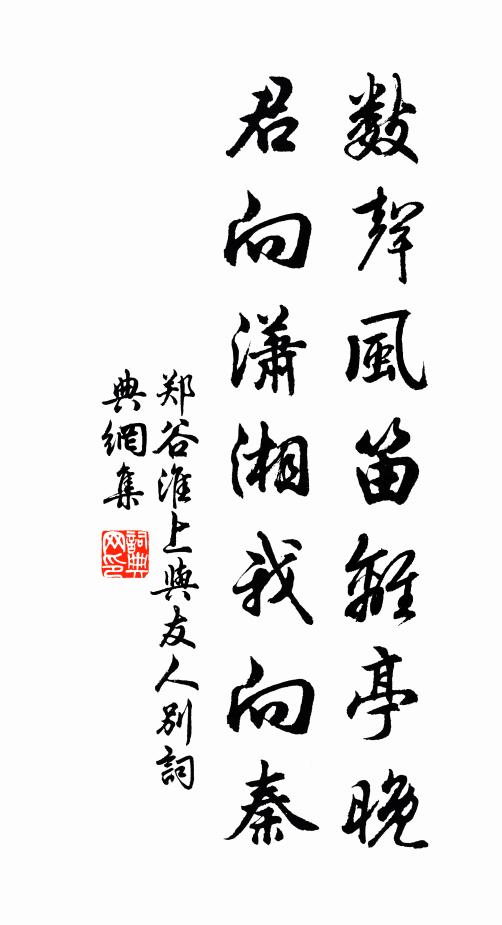 數聲風笛離亭晚
君向瀟湘我向秦
郑谷淮上與友人別詞
典網集
詞典
网印